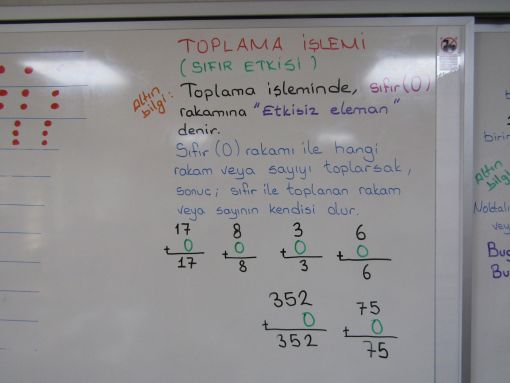 TOPLAMA İŞLEMİ
( SIFIR ETKİSİ )
Altın bilgi:
Toplama işleminde, sıfır (0)
rakamına "Etkisiz eleman"
denir.
Sıfır (0) rakamı ile hangi
rakam veya sayıyı toplarsak,
sonuç; sıfır ile toplanan rakam
veya sayının kendisi olur.
17 8 3 6
+ 0 + 0 + 0 + 0
17 8 3 6
352 75
+ 0 + 0
352 75
birin
Altın
bilgi
Noktalı
vey
Bu